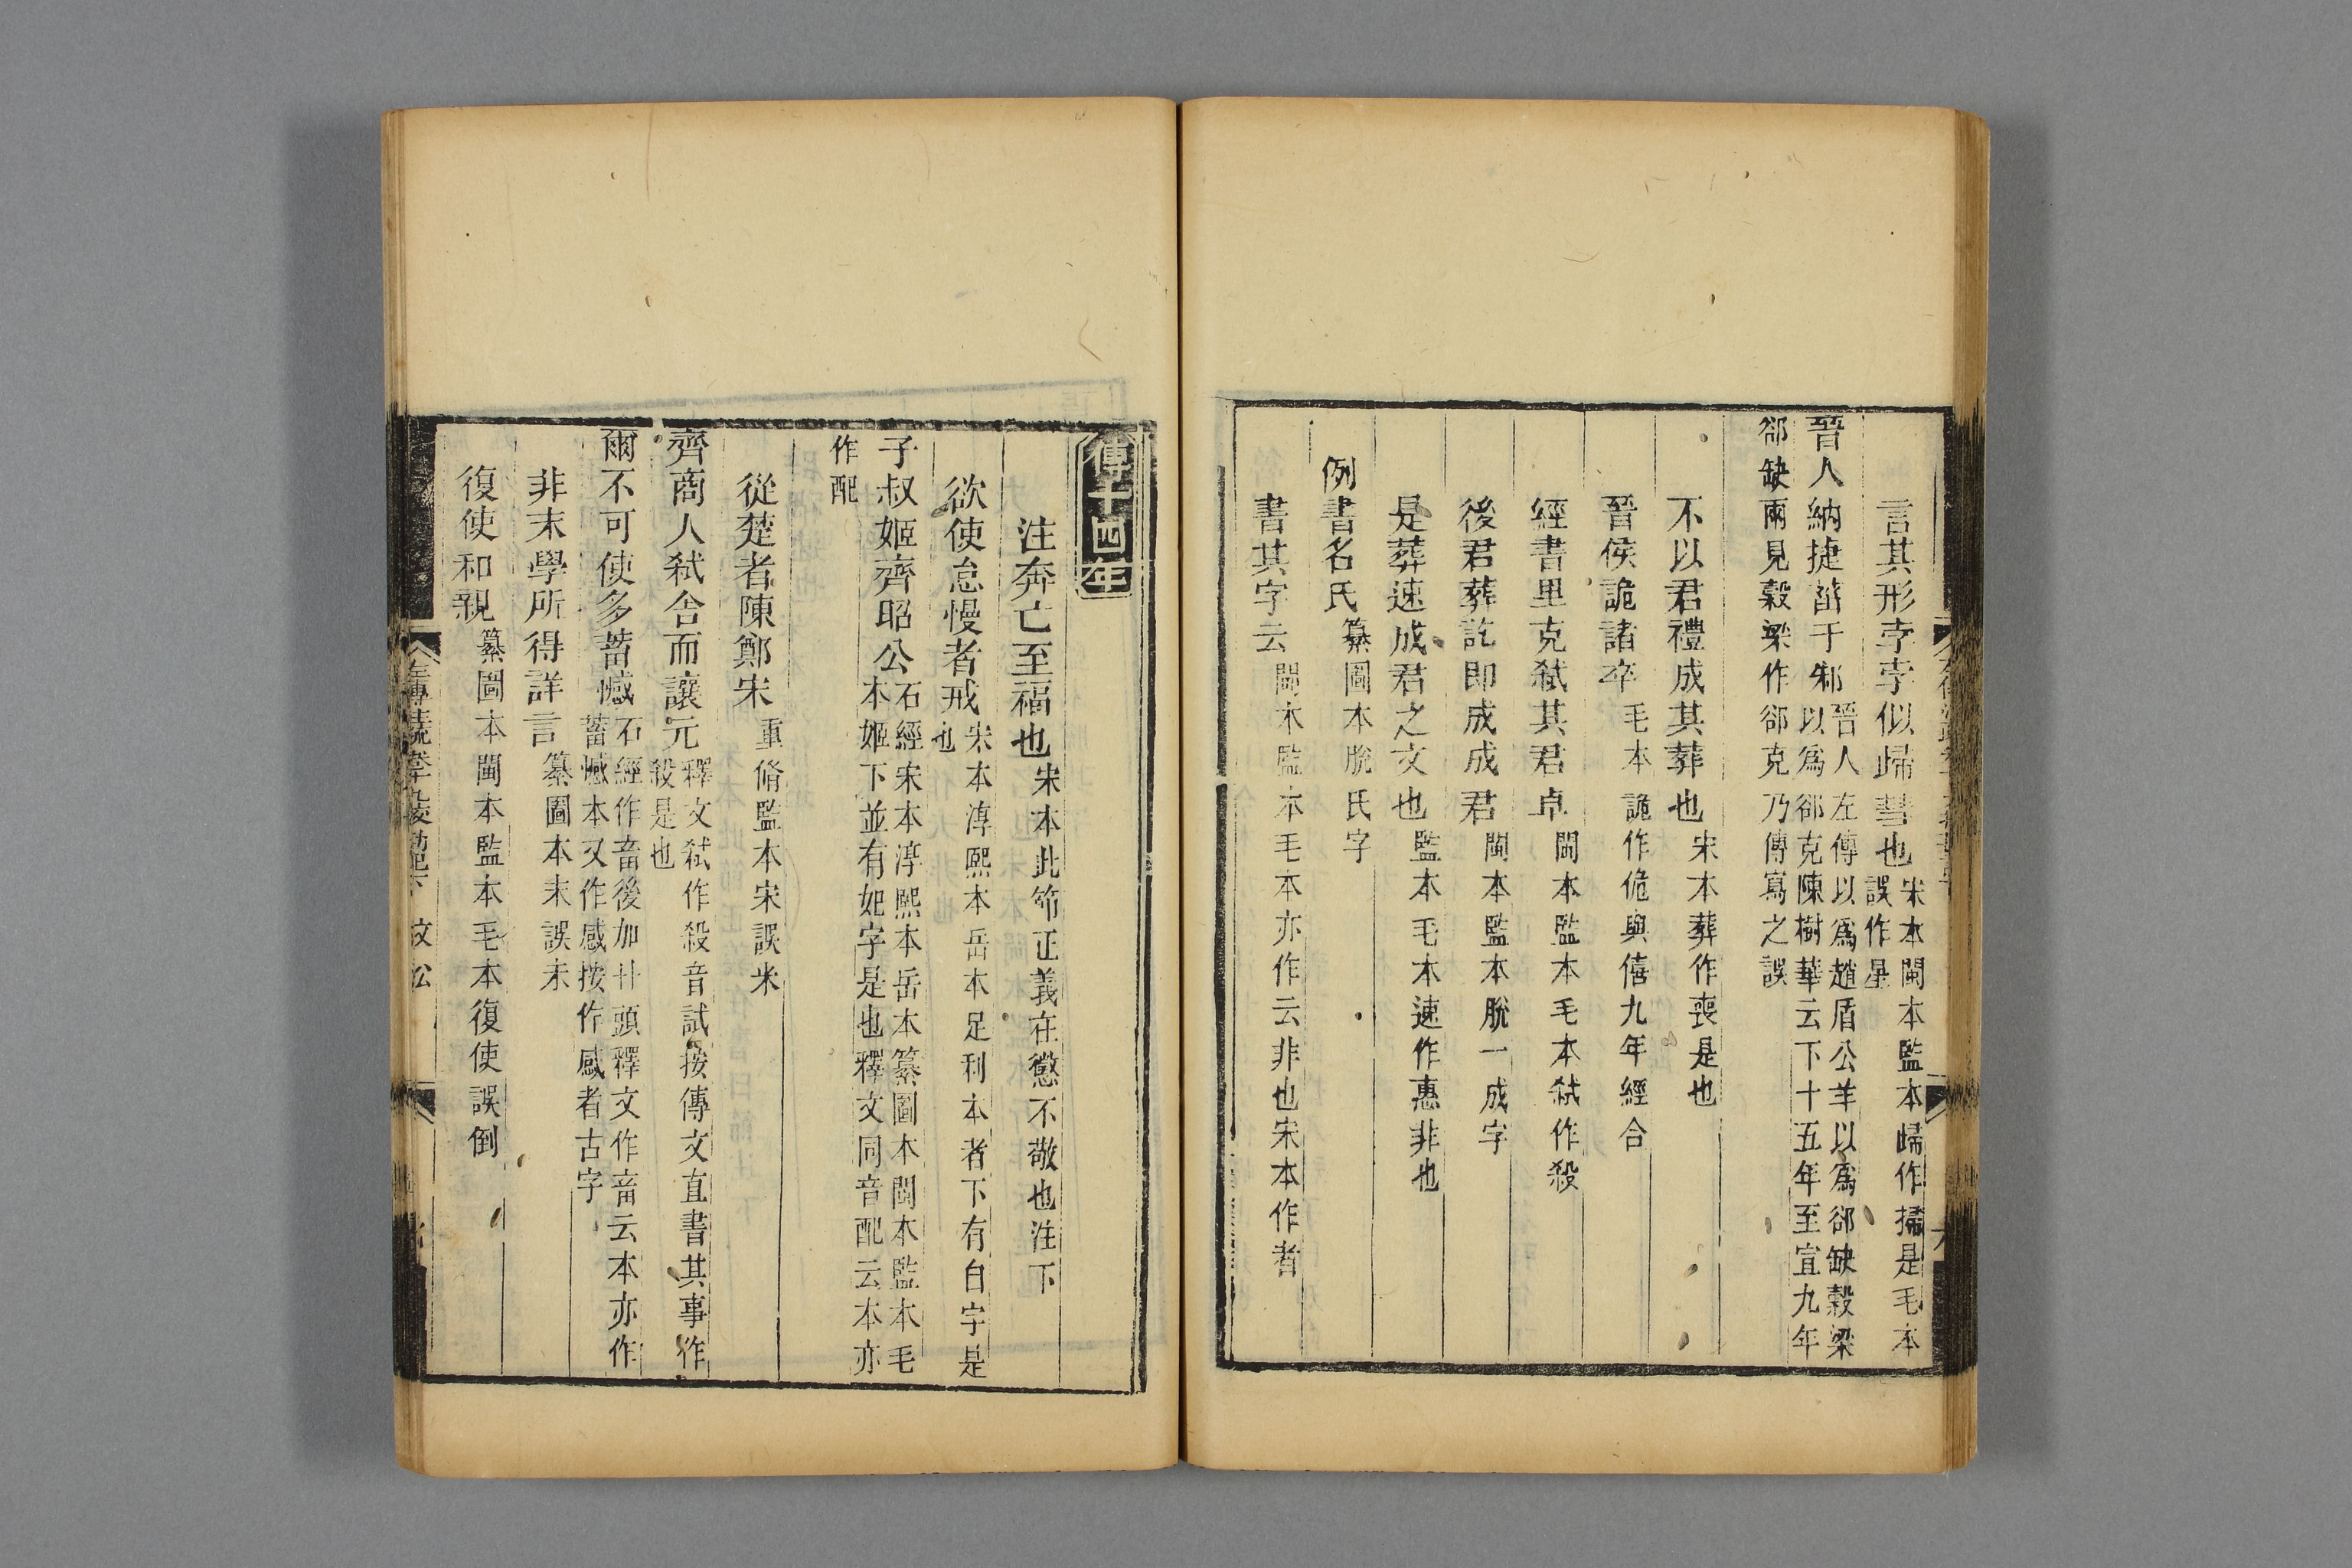 言其形孛孛似歸彗也宋本閩本監本歸作掃是毛本誤作星
晉人納捷菑于邾晉人左傳以爲趙盾公羊以爲郤缺穀梁以爲郤克陳樹華云下十五年至宣九年
郤缺兩見穀梁作郤克乃傳寫之誤
不以君禮成其葬也宋本葬作喪是也
晉侯詭諸卒毛本詭作佹與僖九年經合
經書里克弒其君卓閩本監本毛本弒作殺
後君葬訖即成成君閩本監本脫一成字
是葬速成君之文也監本毛本速作惠非也
例書名氏纂圖本脫氏字
書其字云閩本監本毛本亦作云非也宋本作者
傳十四年
注奔亡至福也宋本此節正義在懲不敬也注下
欲使怠慢者戒宋本淳熙本岳本足利本者下有自字是也
子叔姬齊昭公石經宋本淳熙本岳本纂圖本閩本監本毛本姬下並有妃字是也釋文同音配云本亦
作配
從楚者陳鄭宋重脩監本宋誤米
齊商人弒舍而讓元釋文弒作殺音試按傳文直書其事作殺是也
爾不可使多蓄憾石經作畜後加廾頭釋文作畜云本亦作蓄憾本又作感按作感者古字
非末學所得詳言纂圖本末誤未
復使和親纂圖本閩本監本毛本復使誤倒